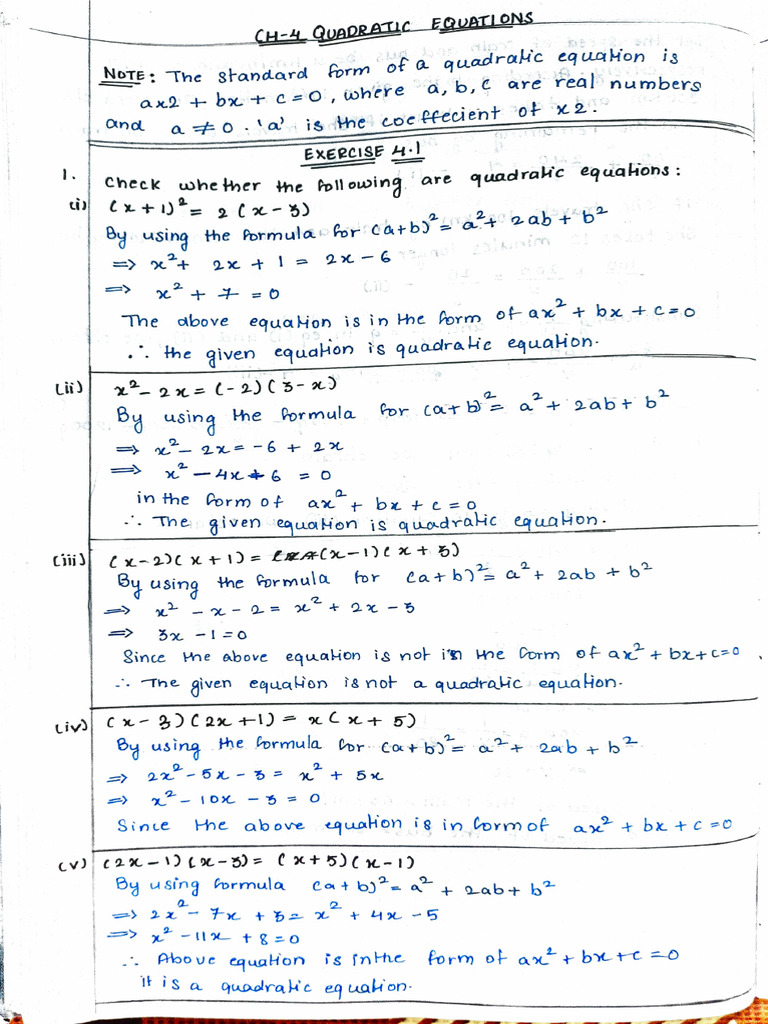 CH-4 QUADRATIC EQUATIONS
NOTE: The standard form of a quadratic equation is
ax2 + bx + c = 0, where a, b, c are real numbers
and a ≠ 0. 'a' is the coeffecient of x2.
EXERCISE 4.1
1. Check whether the following are quadratic equations:
(i) (x+1)² = 2(x-3)
By using the formula for (a+b)² = a² + 2ab + b²
⇒ x² + 2x + 1 = 2x - 6
⇒ x² + 7 = 0
The above equation is in the form of ax² + bx + c = 0
∴ the given equation is quadratic equation.
(ii) x² - 2x = (-2)(3-x)
By using the formula for (a+b)² = a² + 2ab + b²
⇒ x² - 2x = -6 + 2x
⇒ x² - 4x + 6 = 0
in the form of ax² + bx + c = 0
∴ The given equation is quadratic equation.
(iii) (x-2)(x+1) = (x-1)(x+3)
By using the formula for (a+b)² = a² + 2ab + b²
⇒ x² - x - 2 = x² + 2x - 3
⇒ 3x - 1 = 0
Since the above equation is not in the form of ax² + bx + c = 0
∴ The given equation is not a quadratic equation.
(iv) (x-3)(2x+1) = x(x+5)
By using the formula for (a+b)² = a² + 2ab + b²
⇒ 2x² - 5x - 3 = x² + 5x
⇒ x² - 10x - 3 = 0
Since the above equation is in form of ax² + bx + c = 0
(v) (2x-1)(x-3) = (x+5)(x-1)
By using formula (a+b)² = a² + 2ab + b²
⇒ 2x² - 7x + 3 = x² + 4x - 5
⇒ x² - 11x + 8 = 0
∴ Above equation is in the form of ax² + bx + c = 0
it is a quadratic equation.